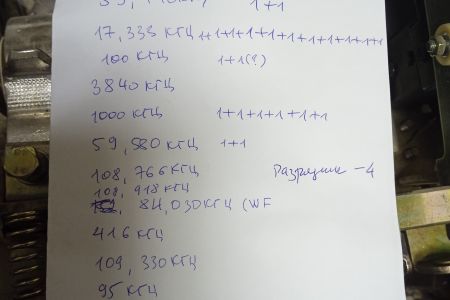 17,338 КГЦ 1+1+1+1+1+1+1+1+1+1+1+1+1
100 КГЦ 1+1(?)
3840 КГЦ
1000 КГЦ 1+1+1+1+1+1
59,580 КГЦ 1+1
108,766 КГЦ Разрядник -4
108,918 КГЦ
84,030 КГЦ (WF
416 КГЦ
109,330 КГЦ
95 КГЦ